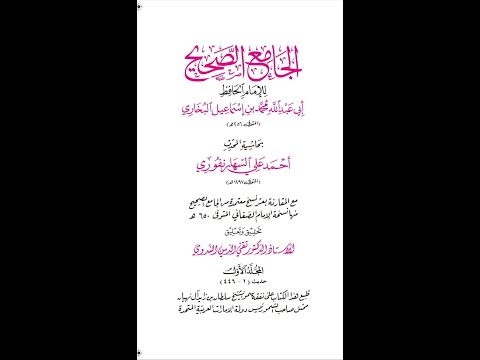 الجامع الصحيح
للإمام الحافظ
أبي عبد الله محمد بن إسماعيل البخاري
(المتوفى ٢٥٦هـ)
بحاشية المحدث
أحمد علي السهارنفوري
(المتوفى ١٢٩٧هـ)
مع المقارنة بعشر نسخ معتمدة من الجامع الصحيح
منها نسخة الإمام الصغاني المتوفى ٦٥٠ هـ
تحقيق وتعليق
الأستاذ الدكتور تقي الدين الندوي
المجلد الأول
حديث (١ - ٤٤٦)
طبع هذا الكتاب على نفقة سمو الشيخ سلطان بن زايد آل نهيان
ممثل صاحب السمو رئيس دولة الإمارات العربية المتحدة